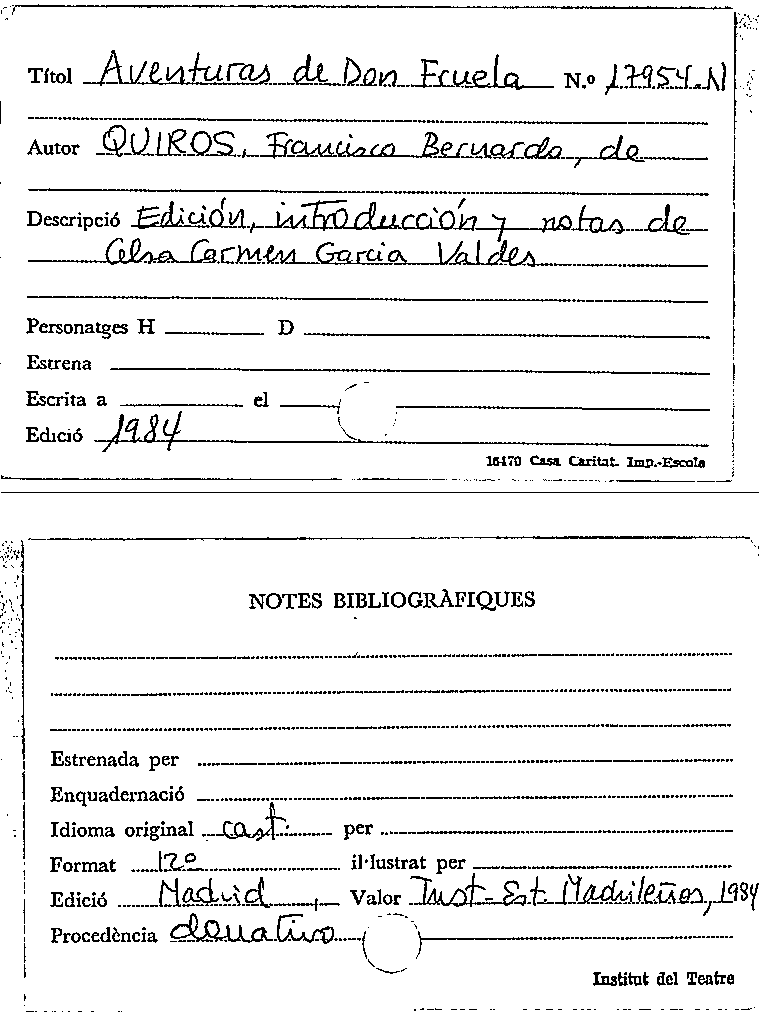 Títol Aventuras de Don Fruela N.º 17954-N
Autor QUIROS, Francisco Bernardo, de
Descripció Edición, introducción y notas de
Celsa Carmen Garcia Valdes
Personatges H D
Estrena
Escrita a el
Edició 1984
16470 Casa Caritat. Imp.-Escola
NOTES BIBLIOGRÀFIQUES
Estrenada per
Enquadernació
Idioma original cast. per
Format 12º il·lustrat per
Edició Madrid, Valor Inst. Est. Madrileños, 1984
Procedència donativo
Institut del Teatre